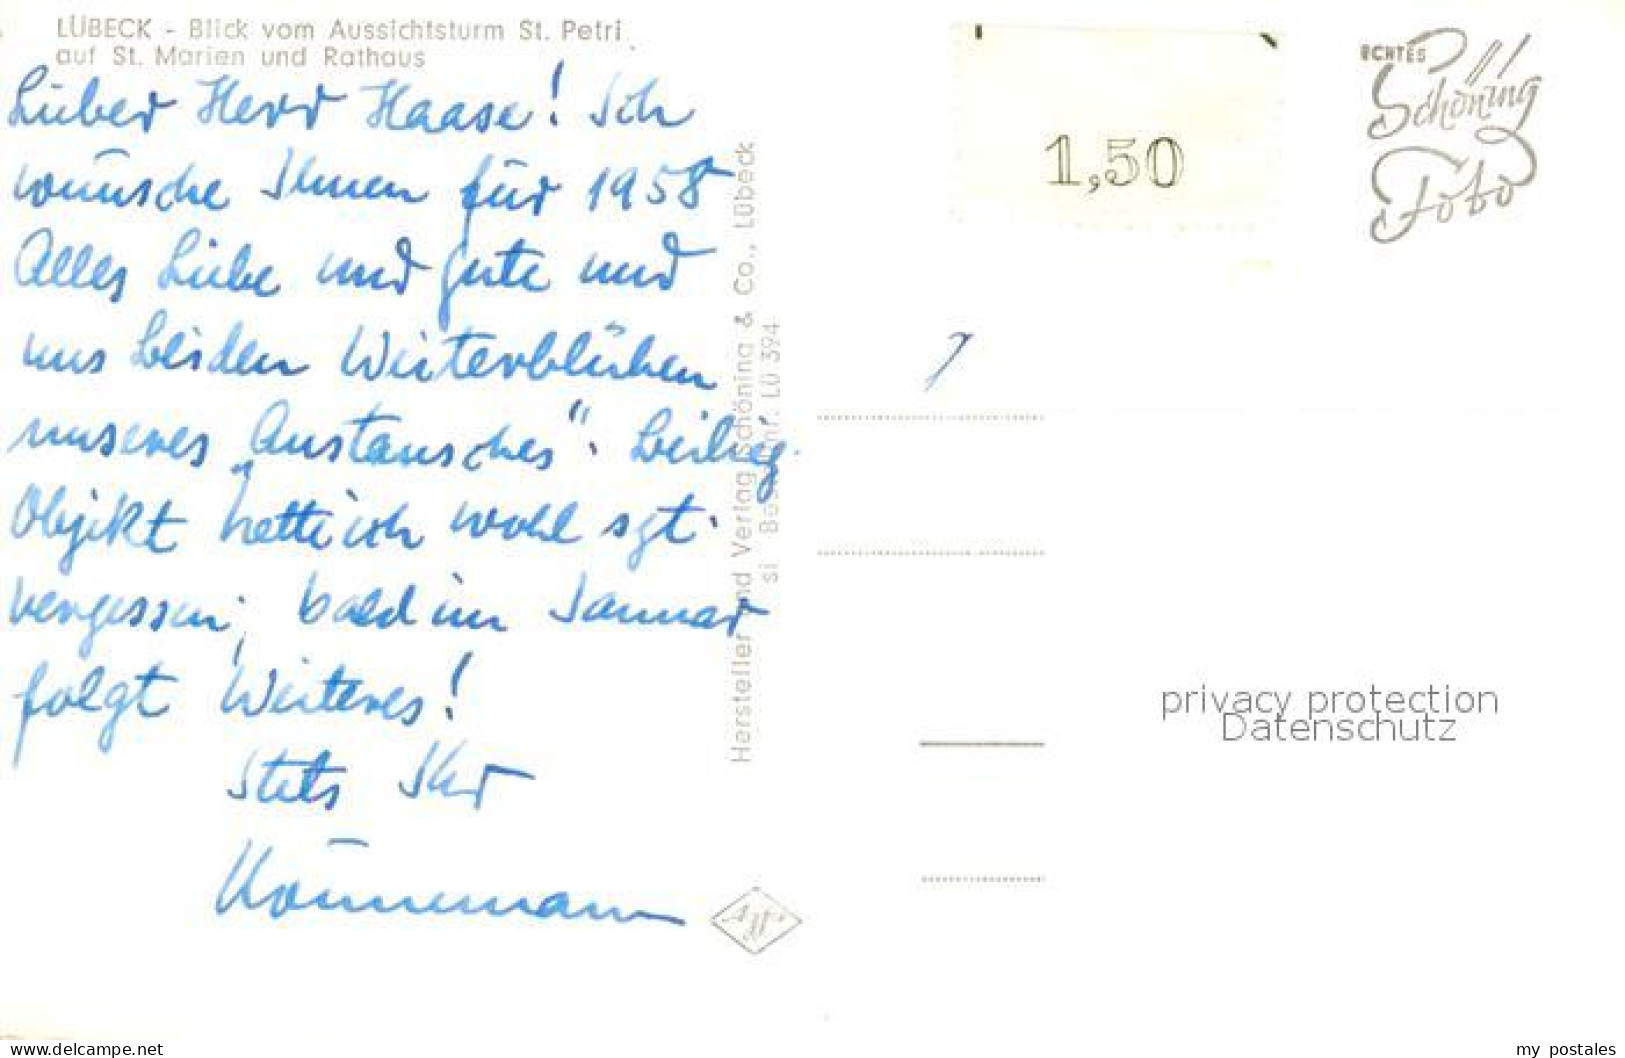 LÜBECK - Blick vom Aussichtsturm St. Petri
auf St. Marien und Rathaus
Lieber Herr Haase! Ich
wünsche Ihnen für 1958
Alles Liebe und gute und
uns beiden Weiterblühen
unseres „Austausches". Beilieg.
Objekt hätte ich wohl
vergessen; bald im Januar
folgt Weiteres!
Stets Ihr
Könnemann
Hersteller und Verlag Schöning & Co., Lübeck
si Best. Nr. LÜ 394
1,50
ECHTES
Schöning
Foto
privacy protection
Datenschutz
delcampe.net
my_postales